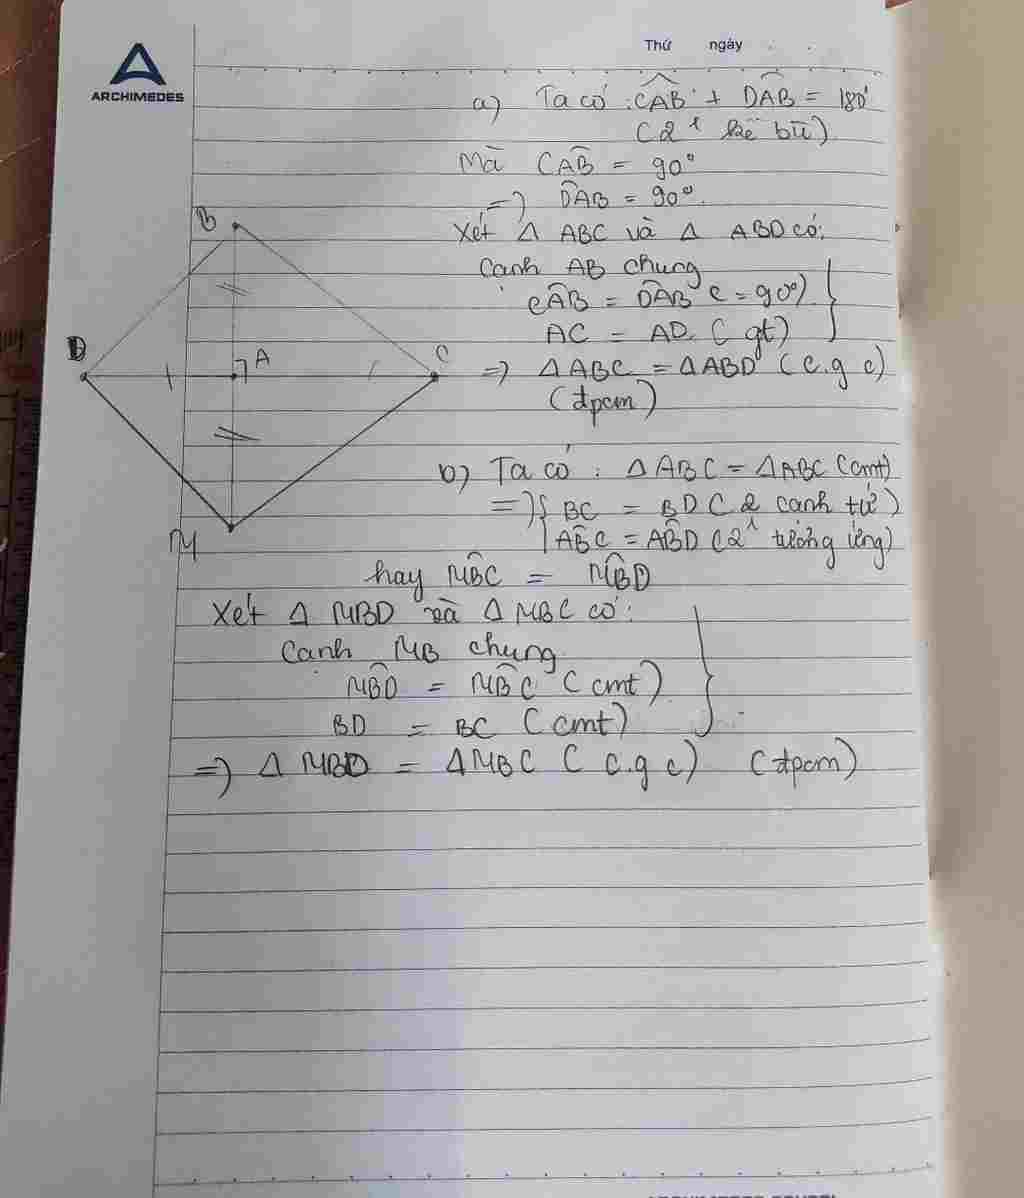 Thứ ngày
ARCHIMEDES
a) Ta có : CAB + DAB = 180°
(2 kề bù)
Mà CAB = 90°
=) DAB = 90°.
Xét Δ ABC và Δ ABD có:
Cạnh AB chung
CAB = DAB (= 90°)
AC = AD ( gt)
=) ΔABC = ΔABD (c.g c)
(đpcm)
B
D
A
C
M
b) Ta có : ΔABC = ΔABC (cmt)
=) { BC = BD ( 2 cạnh tứ )
ABC = ABD (2 tương ứng)
hay MBC = MBD
Xét Δ MBD và Δ MBC có:
Cạnh MB chung
MBD = MBC ( cmt )
BD = BC ( cmt)
=) Δ MBD = ΔMBC ( c.g c) (đpcm)